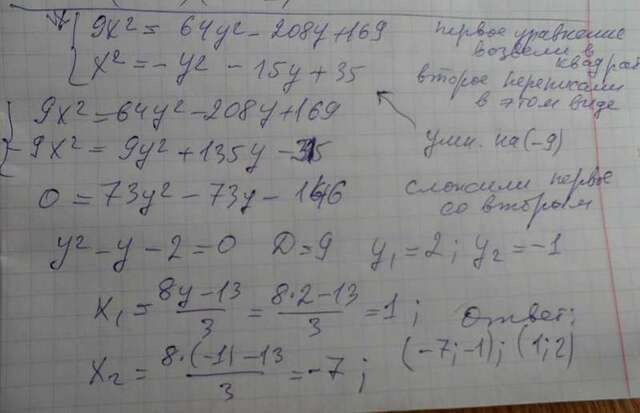 9x² = 64y² - 208y + 169 первое уравнение возвели в квадрат
x² = -y² - 15y + 35 второе переписали в этом виде
9x² = 64y² - 208y + 169
-9x² = 9y² + 135y - 315 умн. на (-9)
0 = 73y² - 73y - 146 сложили первое со вторым
y² - y - 2 = 0 D = 9 y₁ = 2; y₂ = -1
x₁ = (8y-13)/3 = (8·2-13)/3 = 1; Ответ:
x₂ = (8·(-1)-13)/3 = -7; (-7; -1); (1; 2)